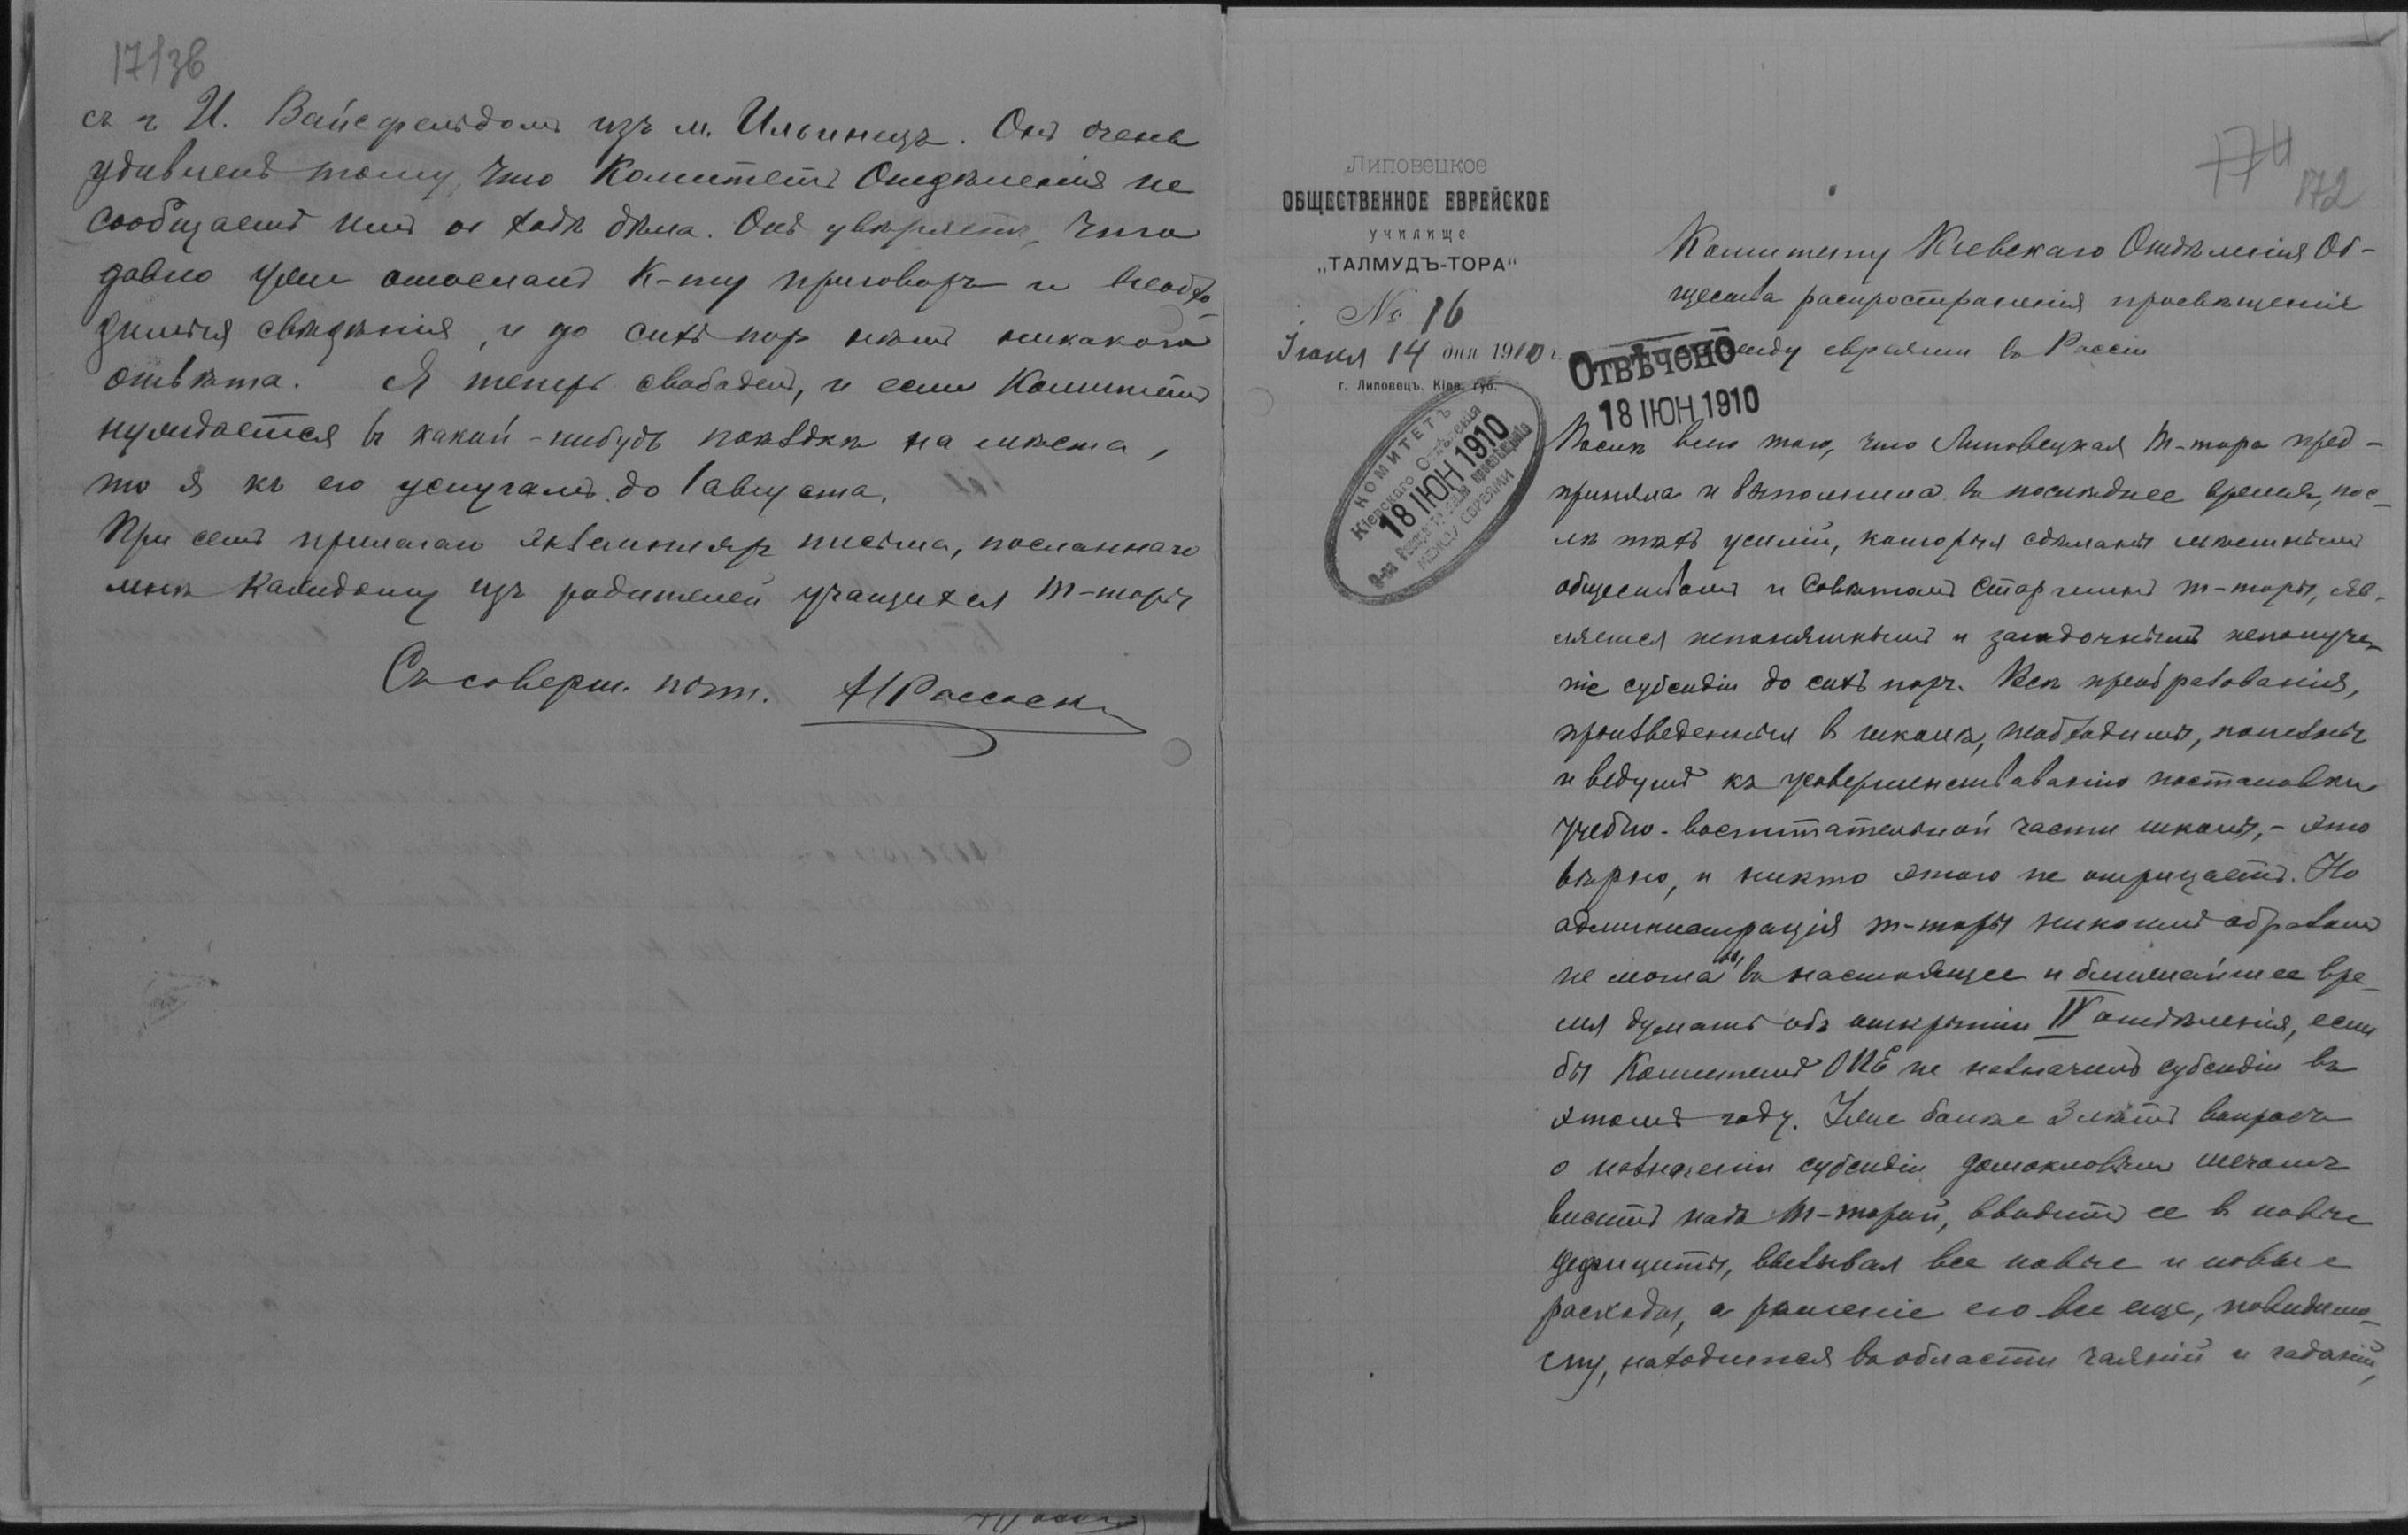 171зв
съ г И. Вайсфельдомъ изъ м. Ильинецъ. Онъ очень
удивленъ тому, что Комитетъ Отдѣленія не
сообщаетъ имъ о ходѣ дѣла. Онъ увѣряетъ, что
давно уже отосланъ К-ту приговоръ и необхо-
димыя свѣдѣнія, и до сихъ пор нѣтъ никакого
отвѣта. Я теперь свободенъ, и если Комитетъ
нуждается въ какой-нибудь поѣздкѣ на мѣста,
то я къ его услугамъ до 1 августа.
При семъ прилагаю экземпляръ письма, посланнаго
мною каждому изъ родителей учащихся Т-торы
Съ соверш. почт.
174
172
Липовецкое
ОБЩЕСТВЕННОЕ ЕВРЕЙСКОЕ
училище
„ТАЛМУДЪ-ТОРА“
№ 16
Іюня 14 дня 1910 г.
г. Липовецъ. Кіев. губ.
КОМИТЕТЪ
Кіевскаго Отдѣленія
18 ІЮН 1910
О-ва Распр-ія просвѣщенія
МЕЖДУ ЕВРЕЯМИ
Комитету Кіевскаго Отдѣленія Об-
щества распространенія просвѣщенія
между евреями въ Россіи
ОТВѢЧЕНО
18 ІЮН. 1910
Послѣ всего того, что Липовецкая Т-тора пред-
приняла и выполнила въ послѣднее время, пос-
лѣ тѣхъ усилій, которыя сдѣланы мѣстнымъ
обществомъ и Совѣтомъ Старшинъ т-торы, яв-
ляется непонятнымъ и загадочнымъ неполуче-
ніе субсидіи до сихъ поръ. Всѣ преобразованія,
произведенныя въ школѣ, необходимы, полезны
и ведутъ къ усовершенствованію постановки
учебно-воспитательной части школы, - это
вѣрно, и никто этого не отрицаетъ. Но
администрація т-торы никоимъ образомъ
не могла бы въ настоящее и ближайшее вре-
мя думать объ открытіи IV отдѣленія, если
бы Комитетъ ОПЕ не назначилъ субсидіи въ
этомъ году. Уже болѣе 3 лѣтъ вопросъ
о назначеніи субсидіи дамокловымъ мечомъ
виситъ надъ Т-торой, вводитъ ее въ новые
дефициты, вызывая все новые и новые
расходы, а рѣшеніе его все еще, повидимо-
му, находится въ области чаяній и гаданій,